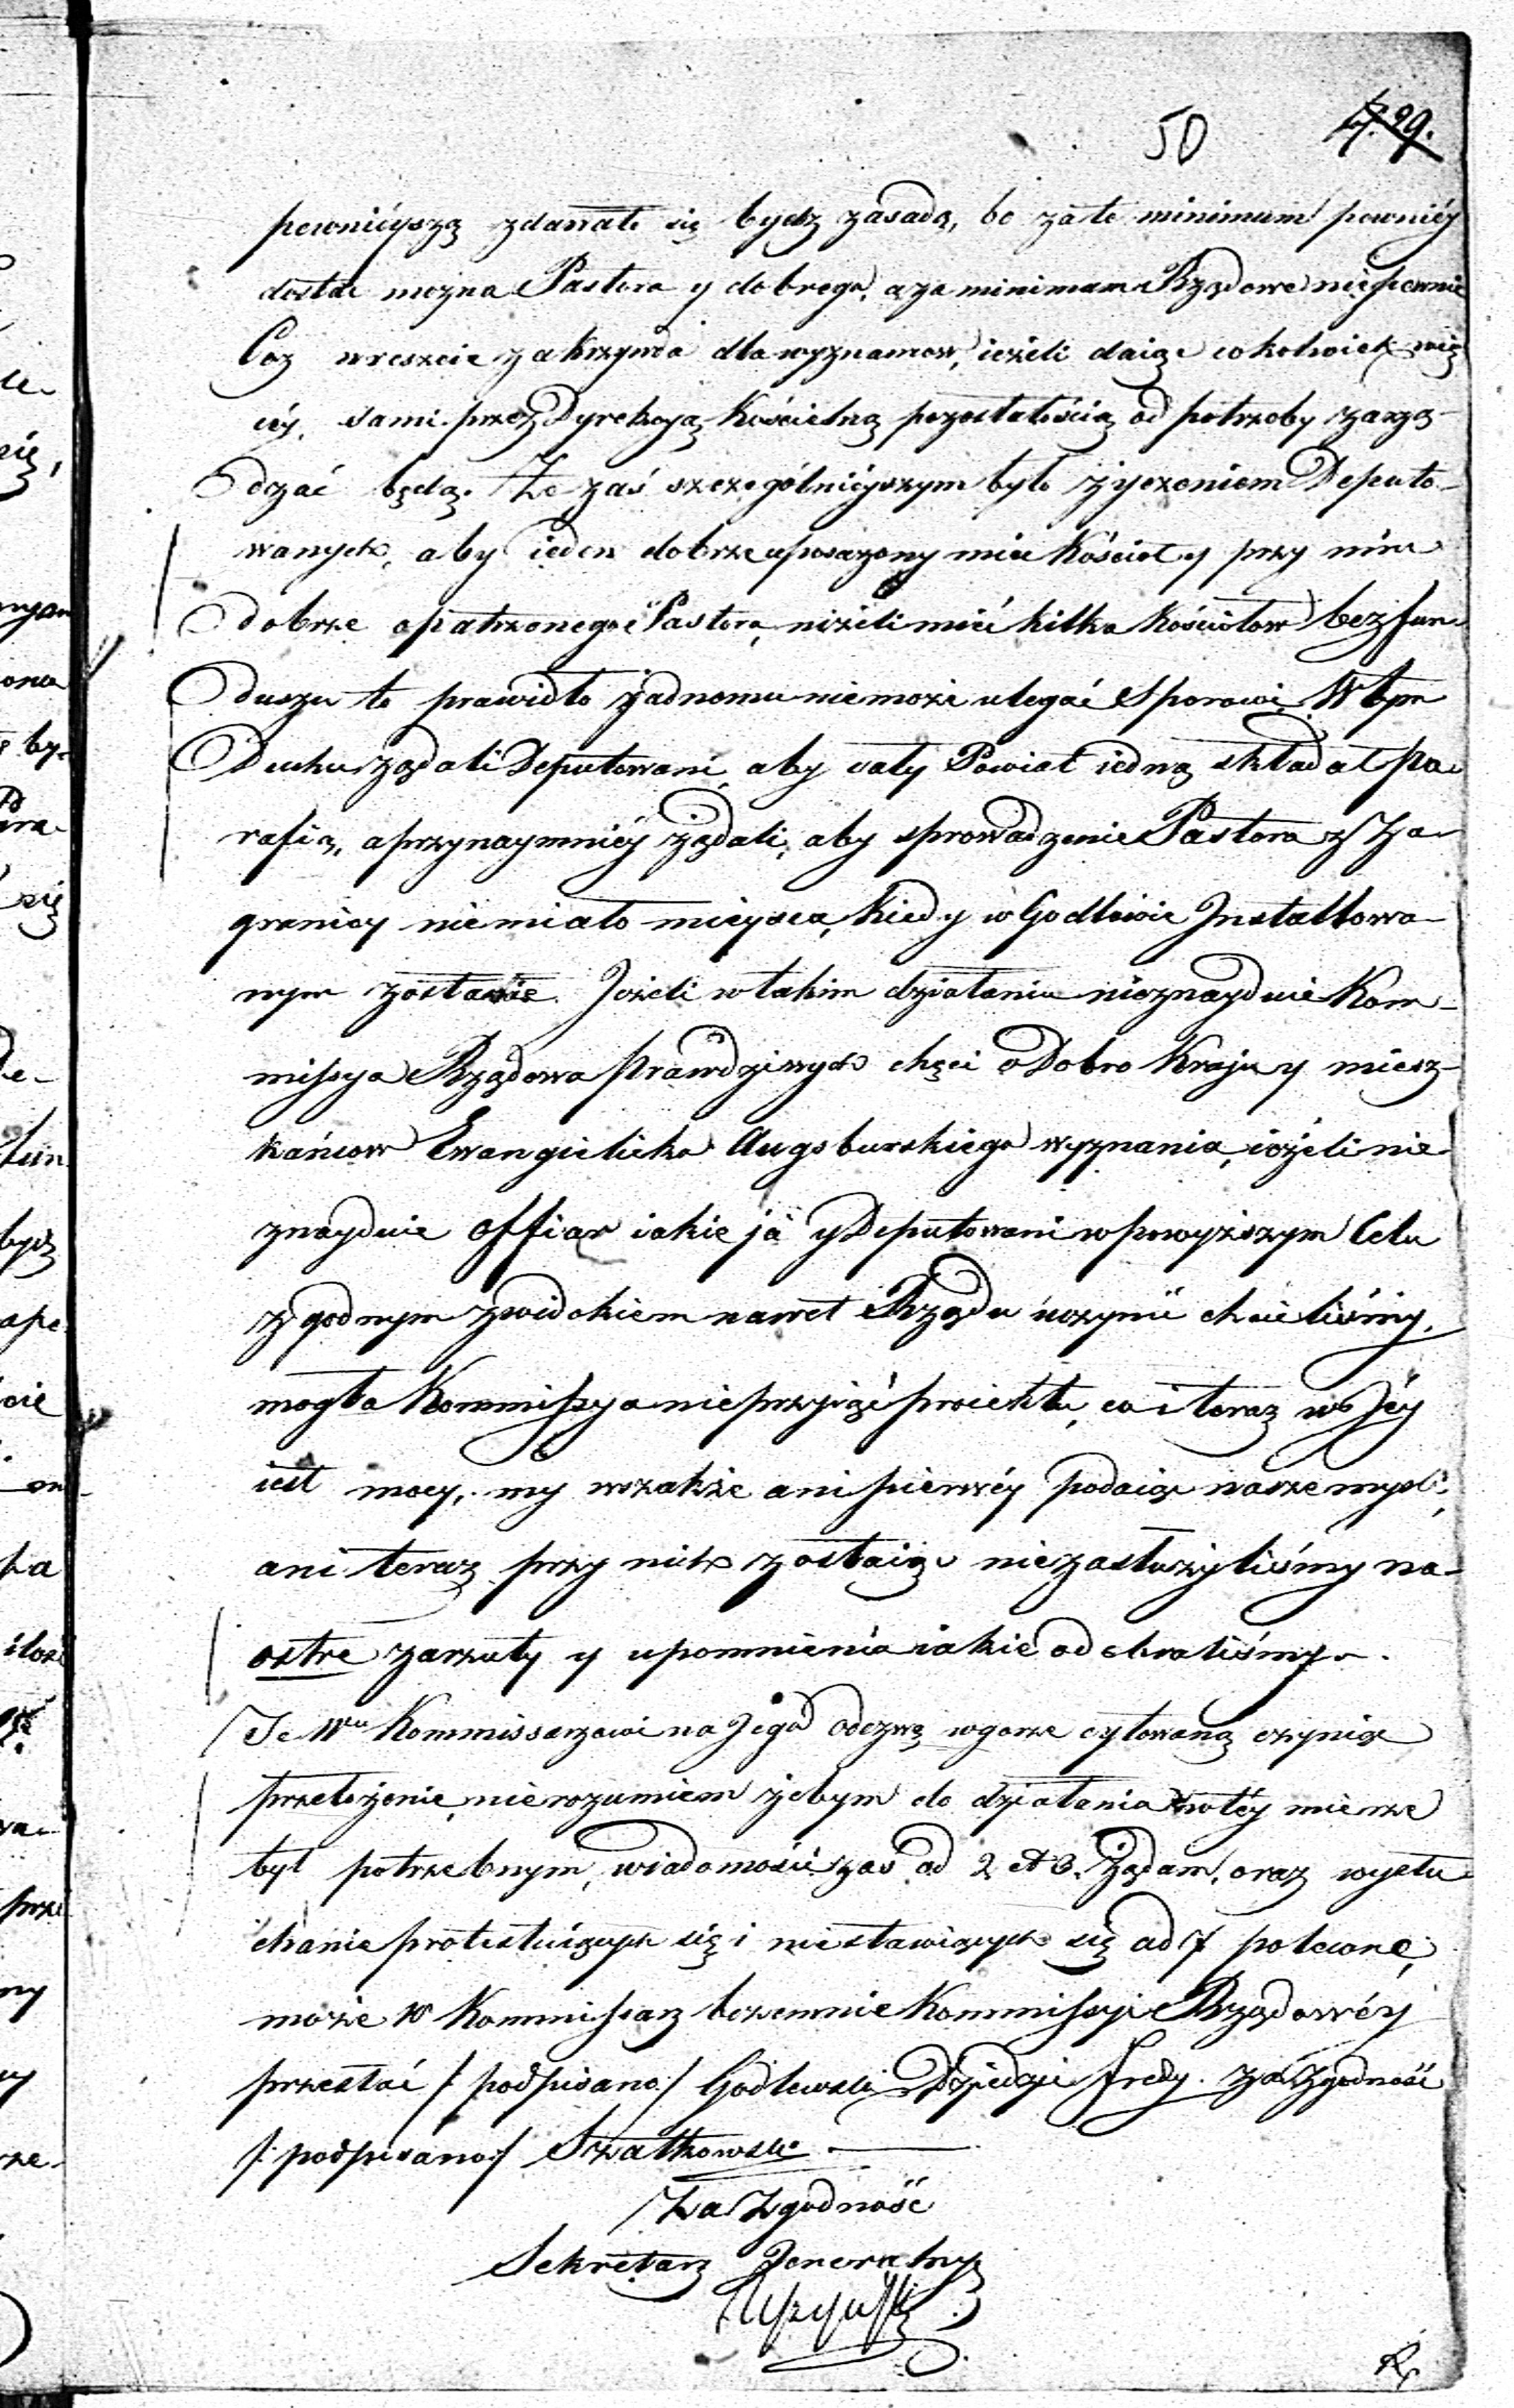 50 47. 29.
pewnieyszą zdawało się bydź zasadą, bo za to minimum pewniéy
dostać można Pastora y dobrego, a za minimum Rządowe niepewnie
Coz wreszcie za krzywda dla wyznawcow, ieżeli daiąc cokolwiek wię
céy, sami przez Dyrekcyą Kościelną pozostałością od potrzeby zarzą-
dzać będą. Ze zaś szczególnieyszym było życzeniem Deputo-
wanych, aby ieden dobrze uposażony mieć Kościoł y przy nim
dobrze opatrzonego Pastora, niżeli mieć kilka Kościołow bez fun
duszu to prawidło żadnemu nie może ulegać Sporowi. W tym
Duchu żądali Deputowani, aby cały Powiat iedną składał pa
rafią, a przynaymniéy żądali, aby sprowadzenie Pastora z Za
granicy nie miało mieysca, kiedy w Godlewie Installowa-
nym zostanie. Jeżeli w takim działaniu nieznayduie Kom-
missya Rządowa prawdziwych chęci o Dobro Kraju y miesz-
kańcow Ewangielicko Augsburskiego wyznania, ieżeli nie
znayduie offiar iakie ja y Deputowani w powyższym Celu
zgodnym z widokiem nawet Rządu uczynić chcieliśmy,
mogła Kommissya nieprzyiąć proiektu, co i teraz w Jéy
iest mocy, my wszakże ani pierwéy podaiąc nasze mysli,
ani teraz przy nich zostaiąc nie zasłużyliśmy na
ostre zarzuty y upomnienia iakie odebraliśmy.
Te Wu Kommissarzowi na Jego odezwę w gorze cytowaną czyniąc
przełożenie, nierozumiem żebym do działania w téy mierze
był potrzebnym, wiadomości zas ad 2 et 3. Żądane, oraz wysłu
chanie protestuiących się i niestawiących się ad 7 polecone,
może W Kommissarz bezemnie Kommissyi Rządowéy
przesłać /: podpisano:/ Godlewski Za Zgodność
/: podpisano:/ Szatkowski
Za Zgodność
Sekretarz Jeneralny